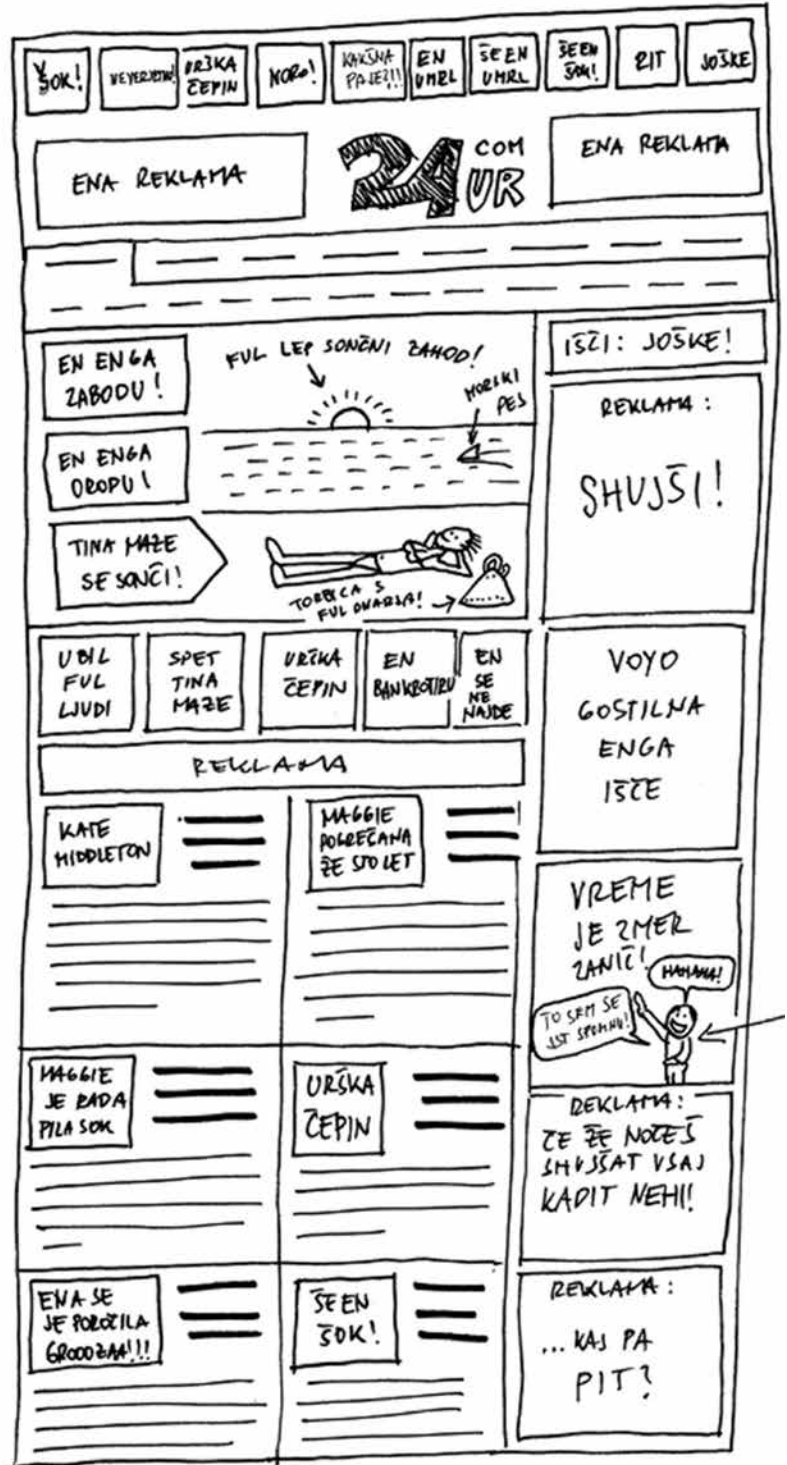 ŠOK!
NEVERJETNO!
URŠKA
ČEPIN
NORO!
KAKŠNA
PA JE?!!
EN
UMRL
ŠE EN
UMRL
ŠE EN
ŠOK!
RIT
JOŠKE
ENA REKLAMA
24
COM
UR
ENA REKLAMA
EN ENGA
ZABODU!
EN ENGA
OROPU!
TINA MAZE
SE SONČI!
FUL LEP SONČNI ZAHOD!
MORSKI
PES
TORBICA S
FUL DNARJA!
IŠČI: JOŠKE!
REKLAMA:
SHUJŠI!
UBIL
FUL
LJUDI
SPET
TINA
MAZE
URŠKA
ČEPIN
EN
BANKROTIRU
EN
SE
NE
NAJDE
VOYO
GOSTILNA
ENGA
IŠČE
REKLAMA
KATE
MIDDLETON
MAGGIE
POGREŠANA
ŽE STO LET
VREME
JE ZMER
ZANIČ!
HAHAHA!
TO SEM SE
JST SPOMNU!
MAGGIE
JE RADA
PILA SOK
URŠKA
ČEPIN
REKLAMA:
ČE ŽE NOČEŠ
SHUJŠAT VSAJ
KADIT NEHI!
ENA SE
JE POROČILA
GROOOZAA!!!
ŠE EN
ŠOK!
REKLAMA:
... KAJ PA
PIT?